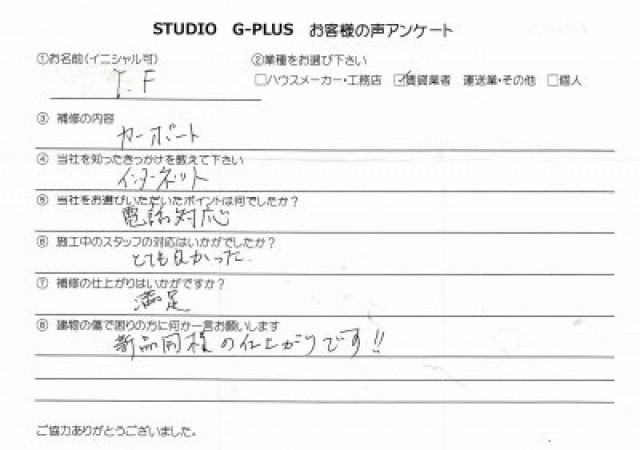 STUDIO G-PLUS お客様の声アンケート
①お名前(イニシャル可) ②業種をお選び下さい
T.F □ハウスメーカー・工務店 ☑賃貸業者 運送業・その他 □個人
③ 補修の内容
カーポート
④ 当社を知ったきっかけを教えて下さい
インターネット
⑤ 当社をお選びいただいたポイントは何でしたか?
電話対応
⑥ 施工中のスタッフの対応はいかがでしたか?
とても良かった。
⑦ 補修の仕上がりはいかがですか?
満足
⑧ 建物の傷で困りの方に何か一言お願いします
新品同様の仕上がりです!!
ご協力ありがとうございました。